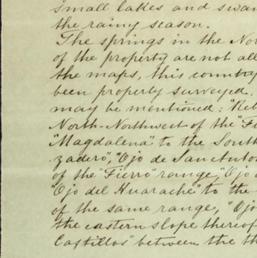 small lakes and swam
the rainy season.
The springs in the Nor
of the property are not all
the maps, this country
been properly surveyed.
may be mentioned: "Reb
North-Northwest of the "F
"Magdalena" to the South
zadero", "Ojo de San Anton
of the "Fierro" range, "Ojo d
"Ojo del Huarache" to the
of the same range, "Ojo
the eastern slope thereof
Castillos" between the th